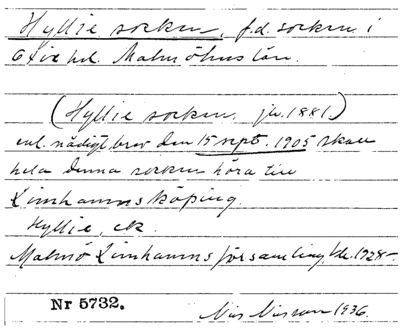 Hyllie socken, f.d. socken i
Oxie hd. Malmöhus län.
(Hyllie socken, jb. 1881.)
enl. nådigt brev den 15 sept. 1905 skall
hela denna socken höra till
Limhamns köping.
Hyllie, ek.
Malmö Limhamns församling, 1928-.
Nr 5732.
Nils Nilsson 1936.